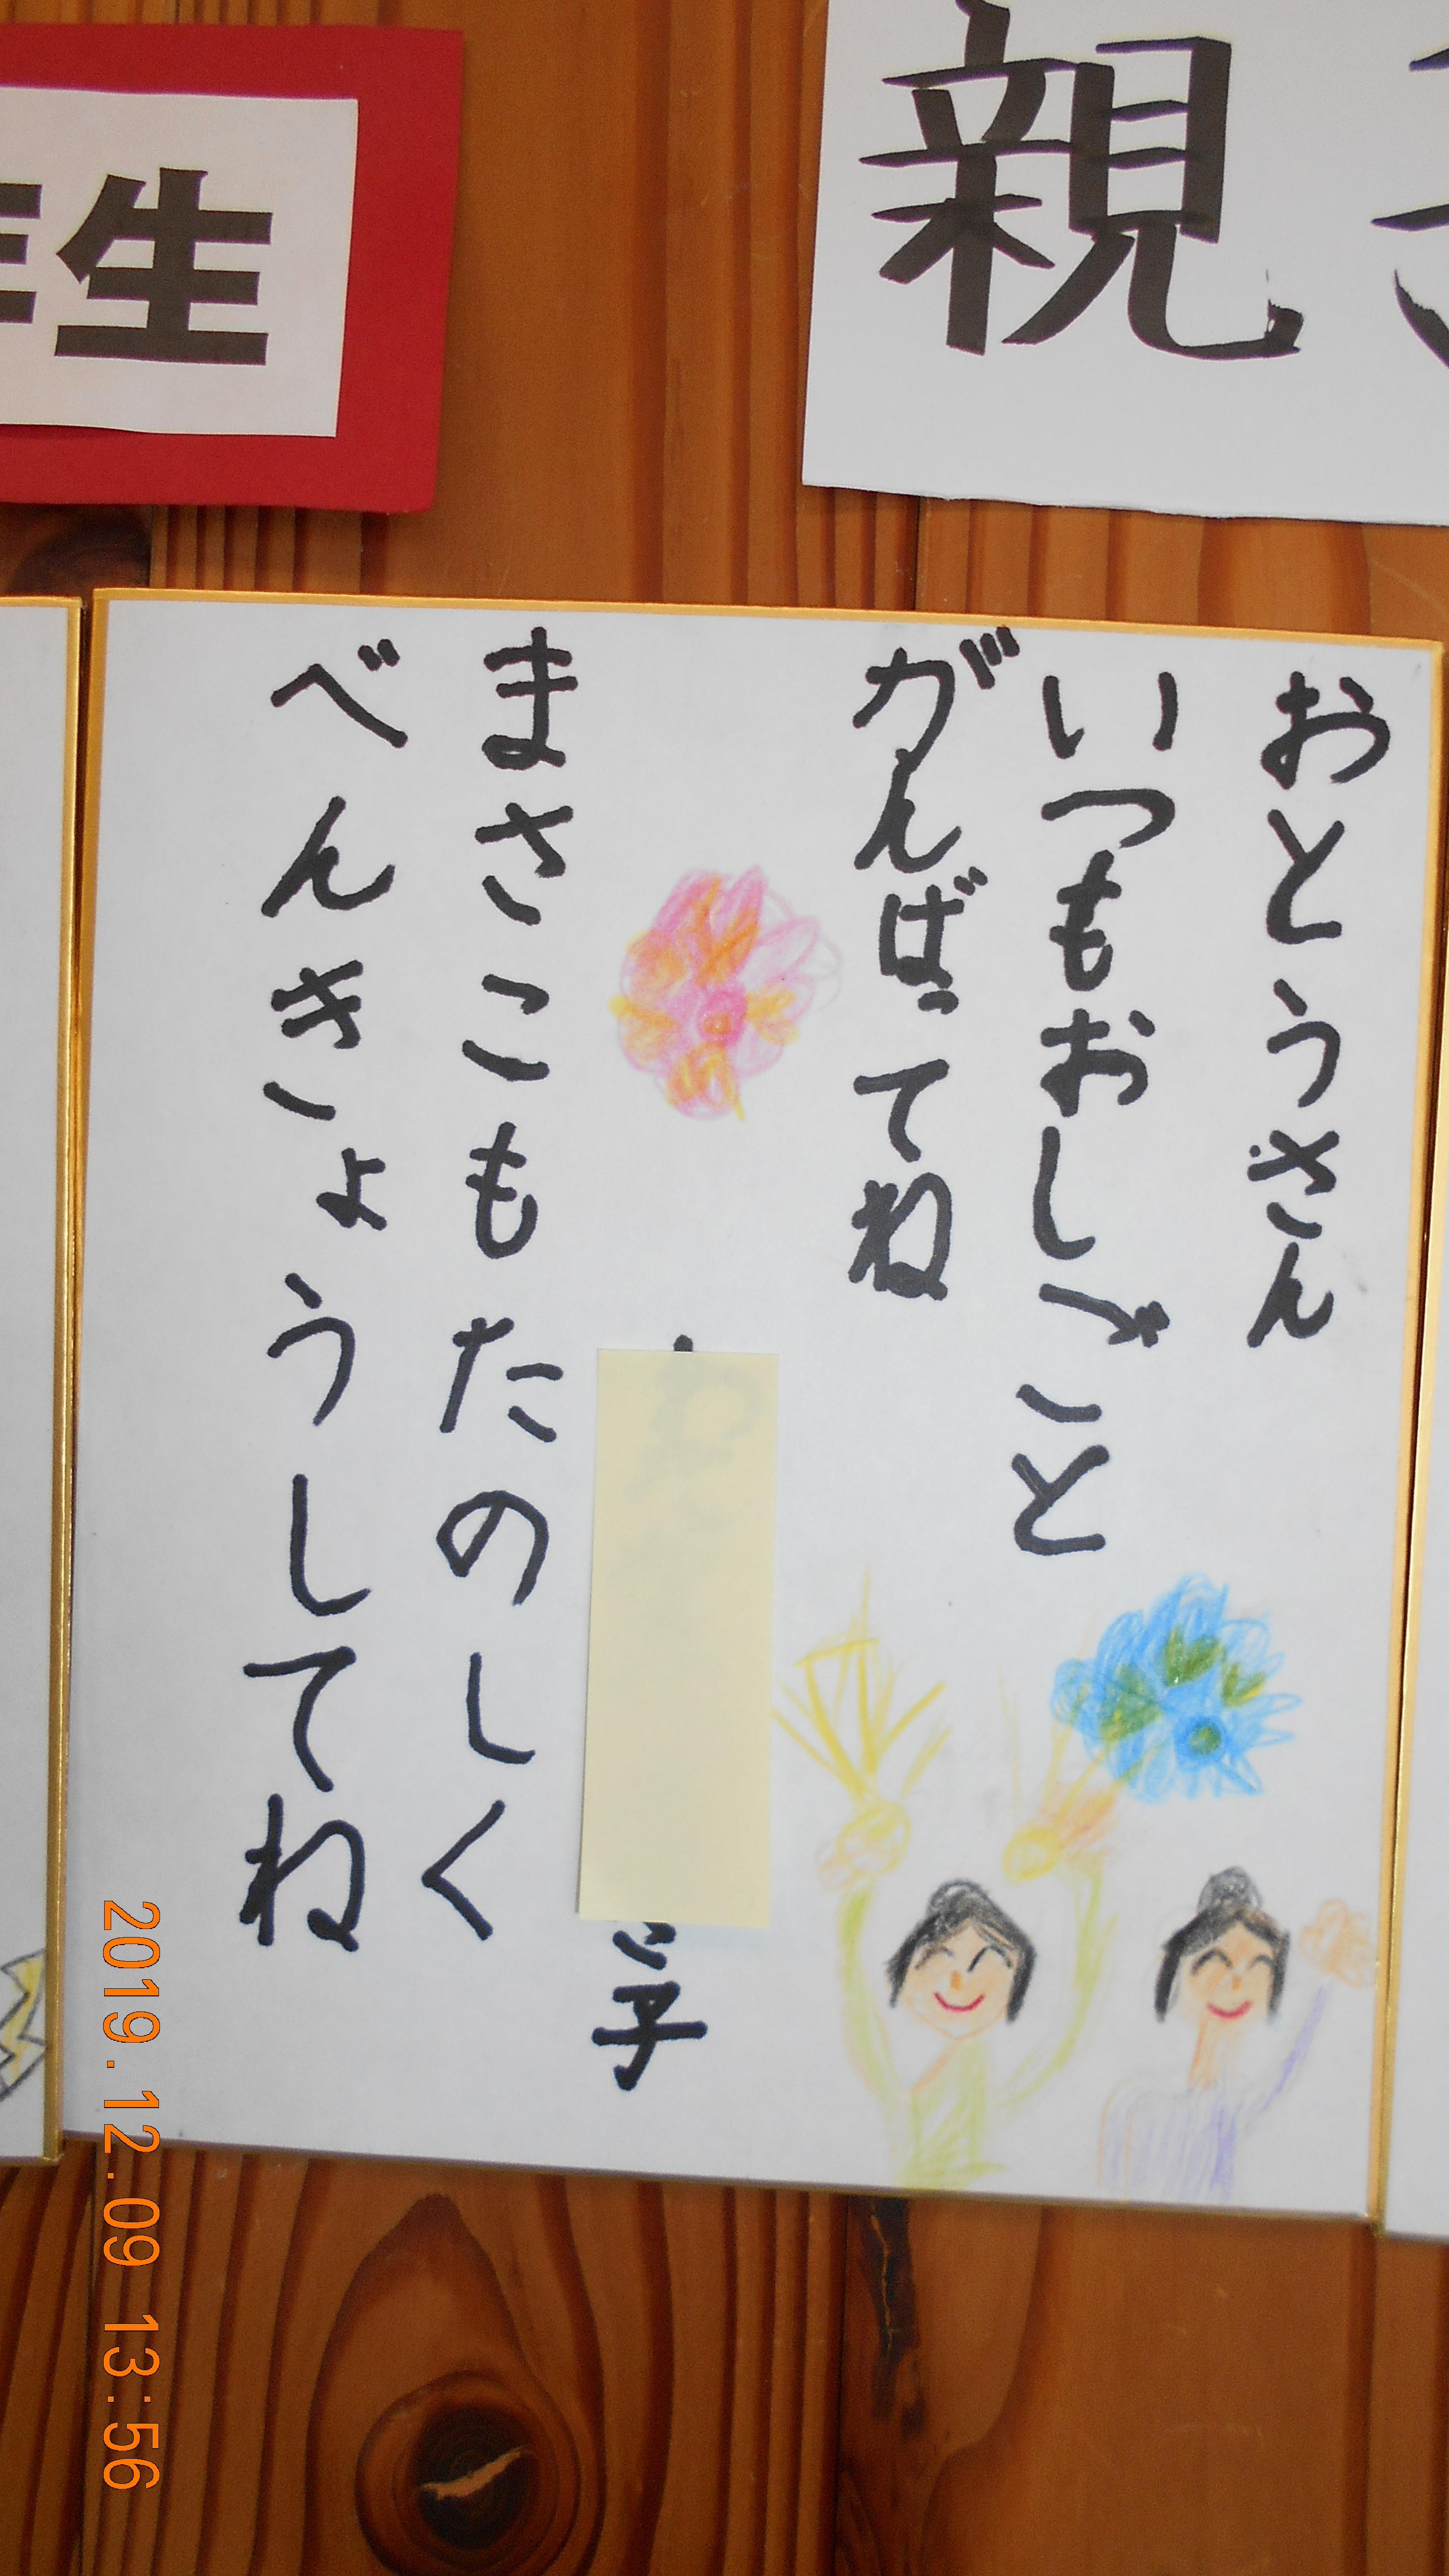 年生
親
おとうさん
いつもおしごと
がんばってね
子
まさこもたのしく
べんきょうしてね
2019.12.09 13:56